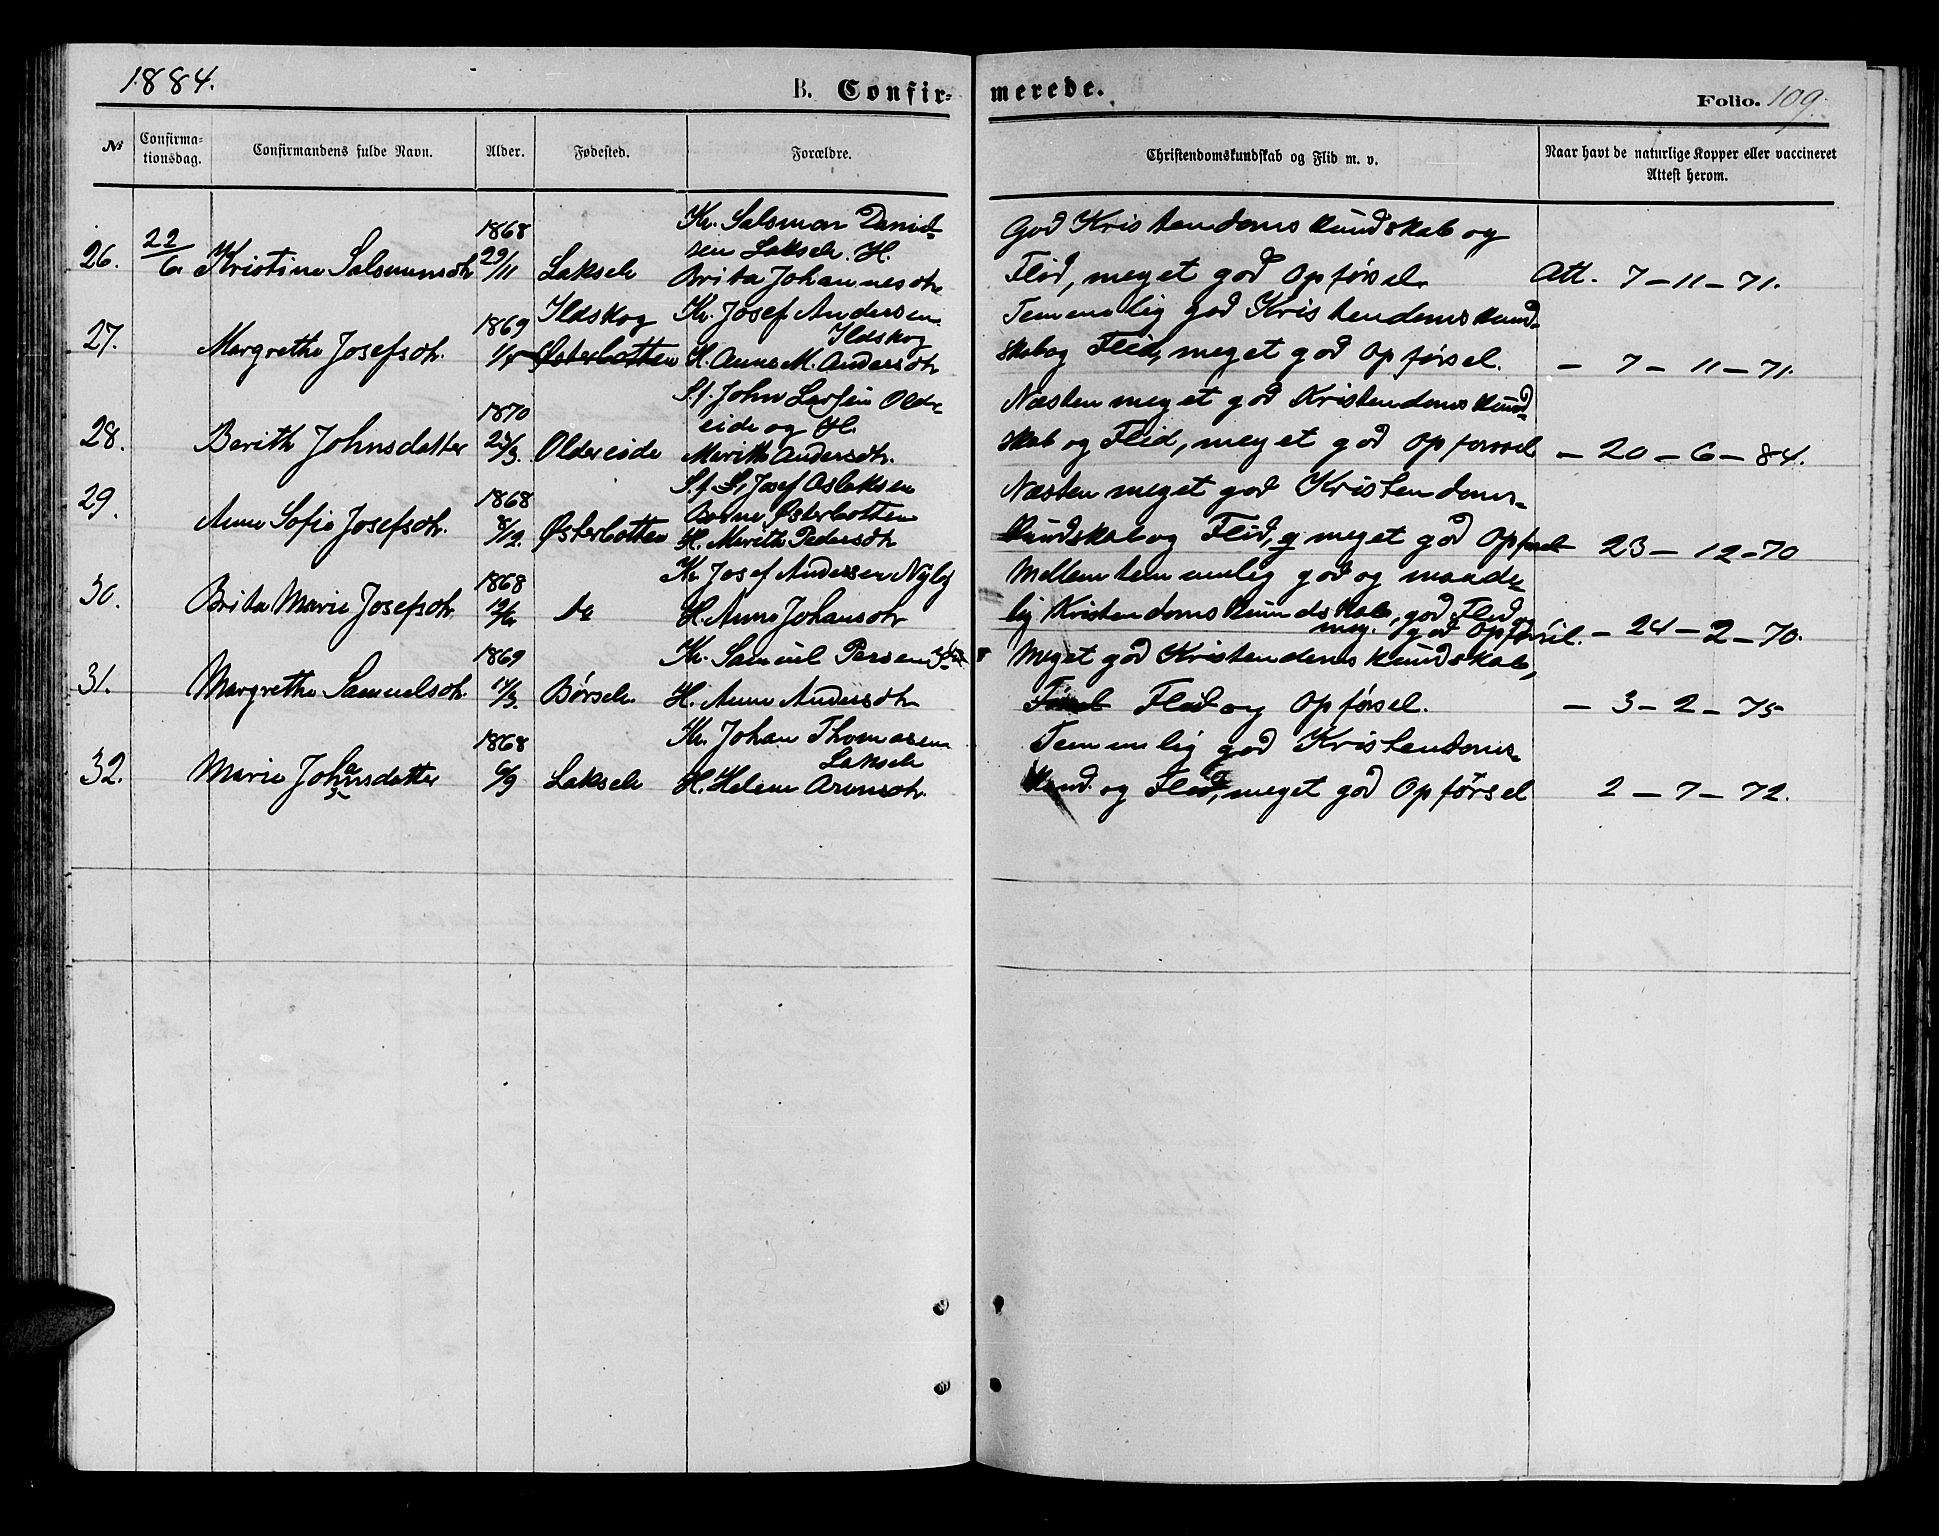 1884.
B. Confir-
merede.
Folio. 109.
№
Confirma-
tionsdag.
Confirmandens fulde Navn.
Alder.
Fødested.
Forældre.
Christendomskundskab og Flid m. v.
Naar havt de naturlige Kopper eller vaccineret
Attest herom.
26. 22/6. Kristine Salomonsdtr 1868 29/11 Lakselv
Kv. Salomon Daniel-
sen Lakselv. H.
Brita Johannesdtr
God Kristendomskundskab og
Flid, meget god Opførsel.
Att. 7-11-71.
27. Margrethe Josefsdtr. 1869 Ildskog
Østerbotten
Kv. Josef Andersen
Ildskog
H. Anne M. Andersdtr
Temmelig god Kristendomskund-
skab og Flid, meget god Opførsel.
- 7 - 11 - 71.
28. Berith Johnsdatter 1870 Oldereide
S.f. John Larsen Older-
eide og H.
Marith Andersdtr.
Næsten meget god Kristendomskund-
skab og Flid, meget god Opførsel
- 20 - 6 - 84.
29. Anne Sofie Josefsdtr. 1868 8/12. Østerbotten
Josef Aslaksen
Østerbotten
H. Marith Pedersdtr
Næsten meget god Kristendoms-
kundskab og Flid, og meget god
23 - 12 - 70
30. Brita Marie Josefsdtr. 1868 do
Kv. Josef Andersen
H. Anne Johansdtr
Mellem temmelig god og maade-
lig Kristendomskundskab, god Flid,
meg. god Opførsel.
- 24 - 2 - 70.
31. Margrethe Samuelsdtr. 1869 14/3. Børselv
Kv. Samuel Persen
H. Anne Andersdtr
Meget god Kristendomskundskab,
Flid og Opførsel.
- 3 - 2 - 75
32. Marie Johansdatter 1868 6/9 Lakselv
Kv. Johan Thomasen
Lakselv
H. Helene Aronsdtr.
Temmelig god Kristendoms-
kund. og Flid, meget god Opførsel
2 - 7 - 72.